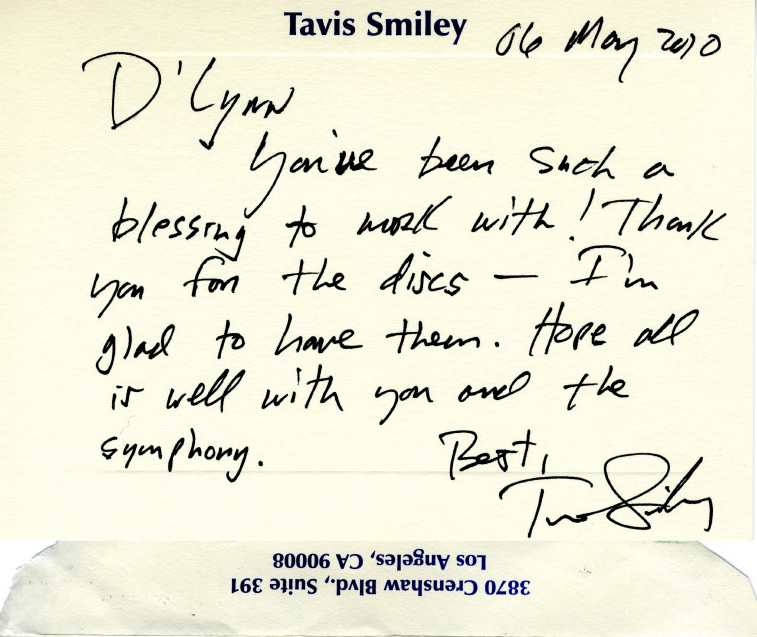 Tavis Smiley
06 May 2010
D'Lynn
You've been such a
blessing to work with! Thank
you for the discs — I'm
glad to have them. Hope all
is well with you and the
symphony.
Best,
Tavis Smiley
3870 Crenshaw Blvd., Suite 391
Los Angeles, CA 90008